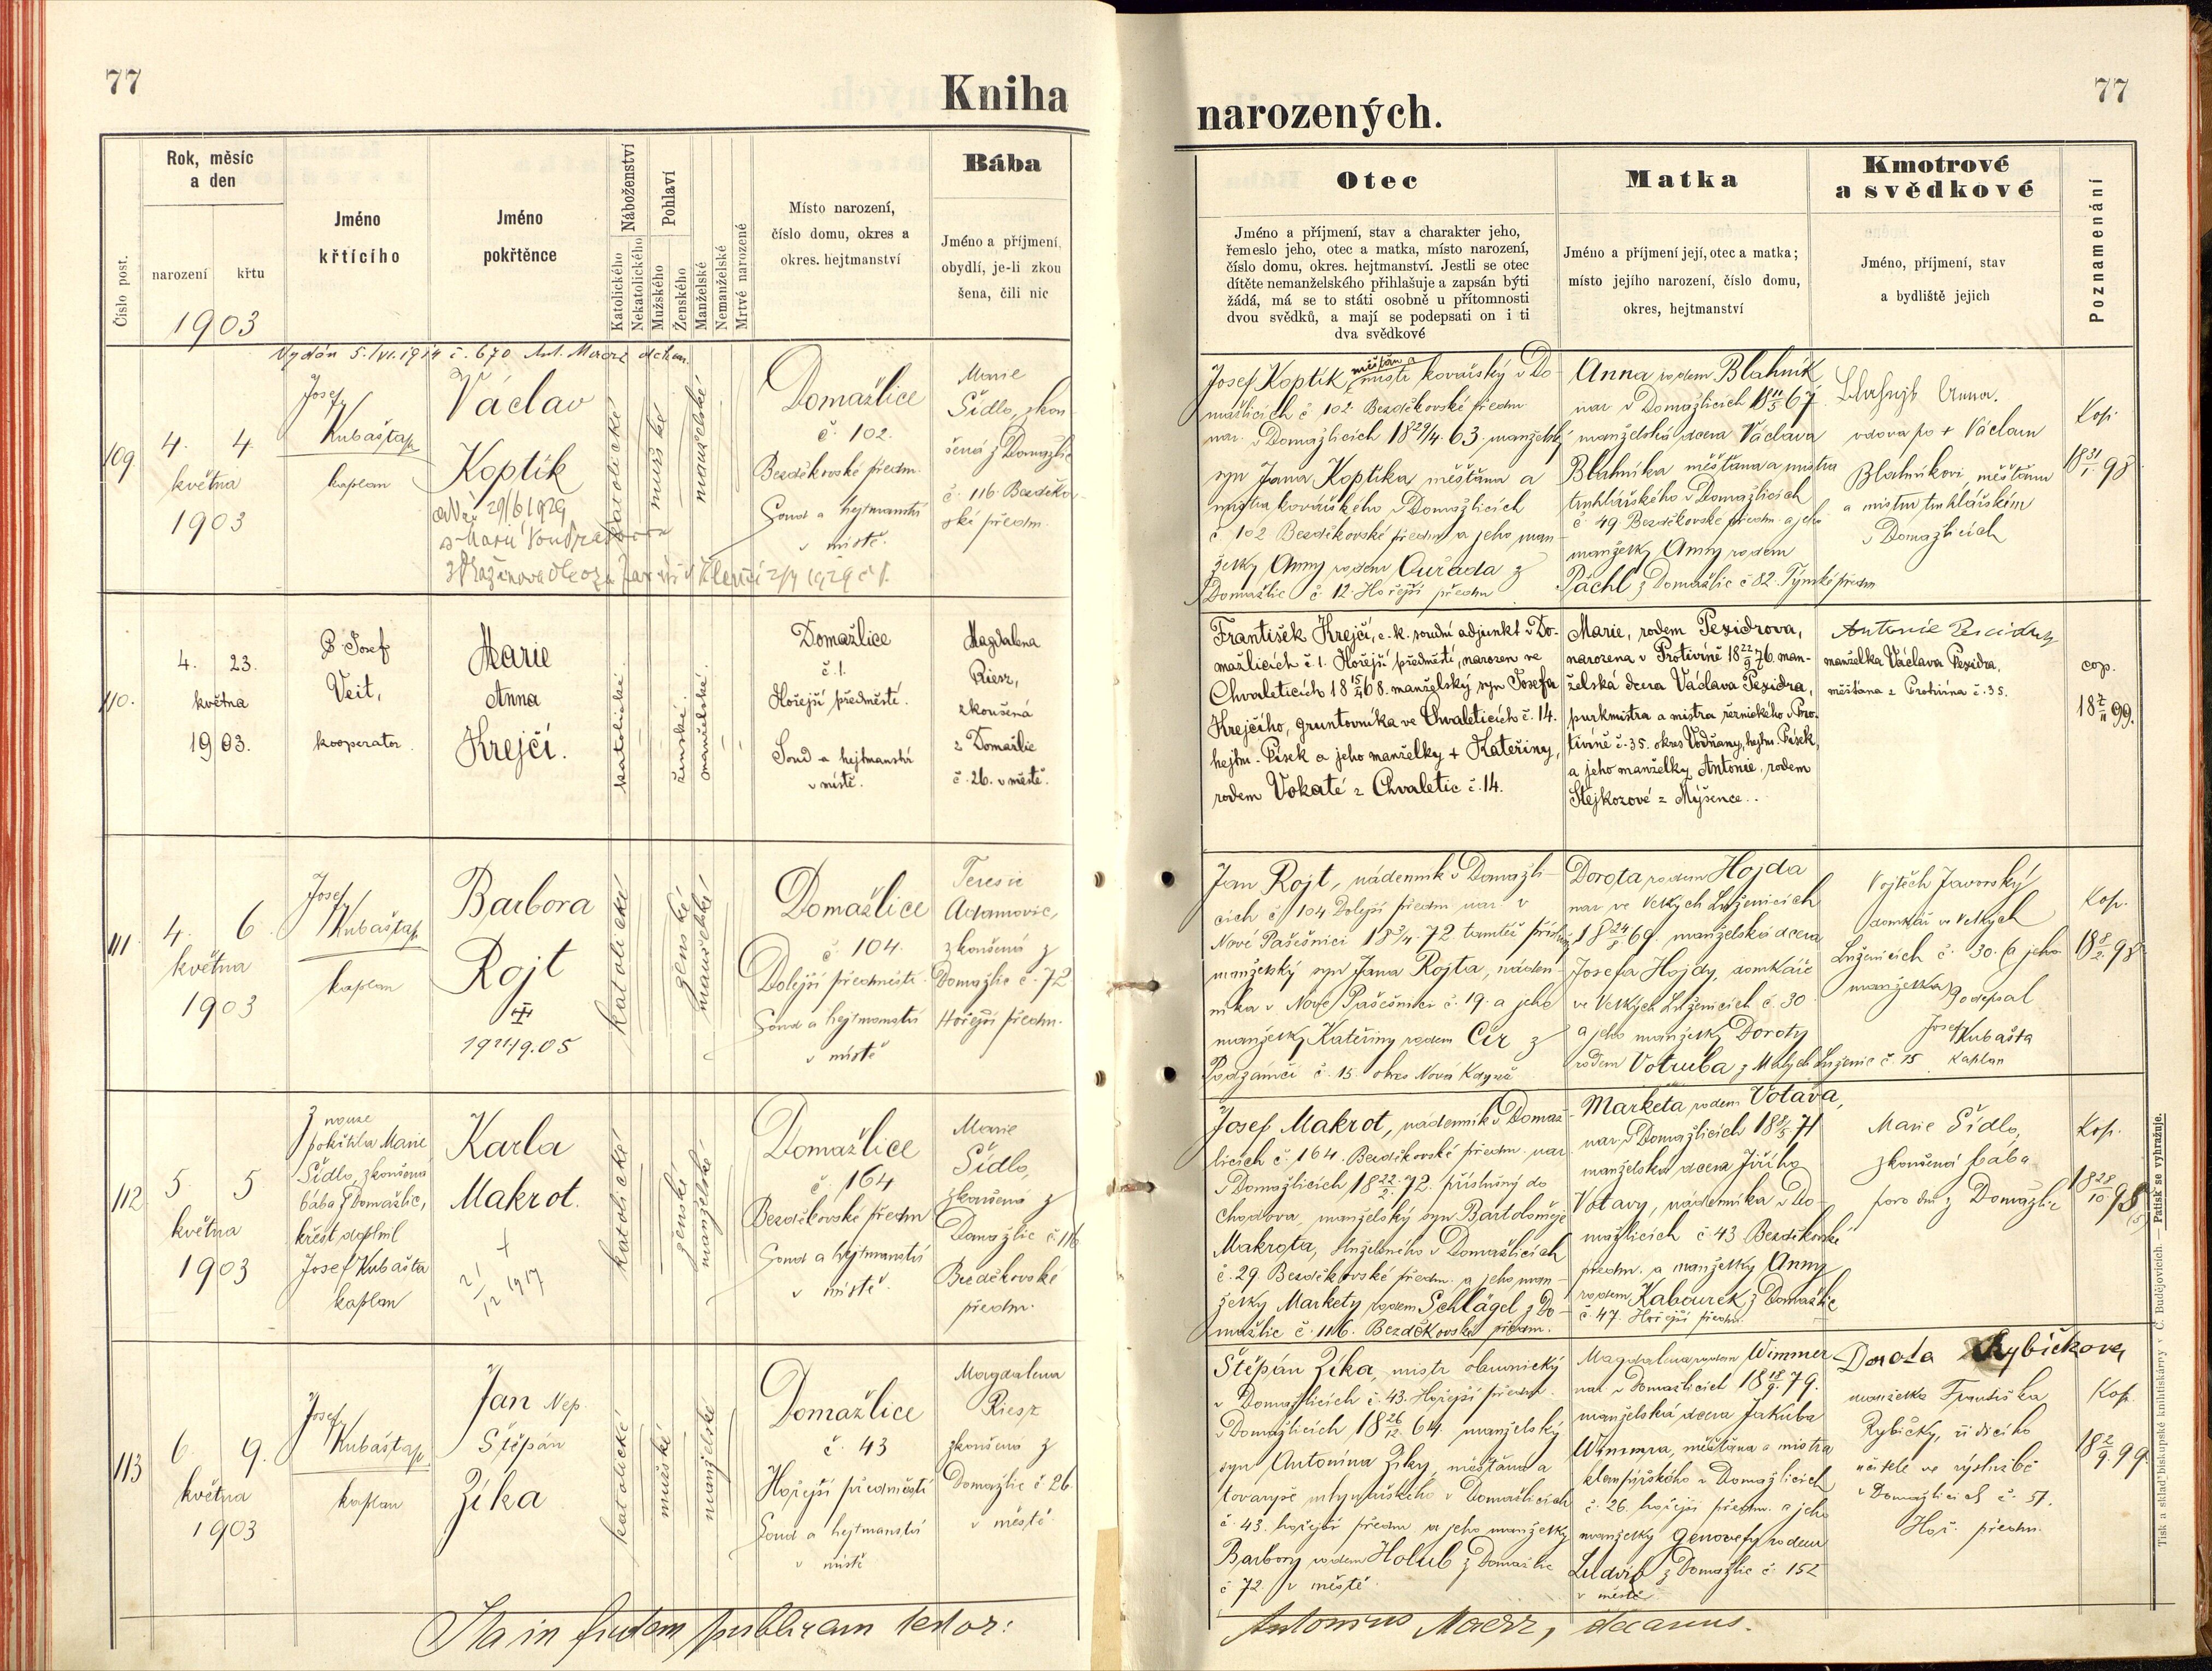 77
Kniha
narozených.
77
Číslo post.
Rok, měsíc
a den
narození
křtu
1903
Jméno
křtícího
Jméno
pokřtěnce
Náboženství
Katolického
Nekatolického
Pohlaví
Mužského
Ženského
Manželské
Nemanželské
Mrtvé narozené
Místo narození,
číslo domu, okres a
okres. hejtmanství
Bába
Jméno a příjmení,
obydlí, je-li zkou
šena, čili nic
Otec
Jméno a příjmení, stav a charakter jeho,
řemeslo jeho, otec a matka, místo narození,
číslo domu, okres. hejtmanství. Jestli se otec
dítěte nemanželského přihlašuje a zapsán býti
žádá, má se to státi osobně u přítomnosti
dvou svědků, a mají se podepsati on i ti
dva svědkové
Matka
Jméno a příjmení její, otec a matka;
místo jejího narození, číslo domu,
okres, hejtmanství
Kmotrové
a svědkové
Jméno, příjmení, stav
a bydliště jejich
Poznamenání
Vydán 5./VI. 1914 č. 670
109
4. 4.
května
1903
Josef
Kubašta
kaplan
Václav
Koptík
29/6 1929
katolické
mužské
manželské
Domažlice
č. 102.
Bezděkovské předm.
Soud a hejtmanství
v místě.
Marie
Sídlo, zkou-
šená z Domažlic
č. 116. Bezděkov-
ské předm.
Josef Koptík měšťan a mistr kovářský v Do-
mažlicích č. 102. Bezděkovské předm.
nar. v Domažlicích 18 29/4. 63. manželský
syn Jana Koptíka, měšťana a
mistra kovářského v Domažlicích
č. 102 Bezděkovské předm. a jeho man-
želky Anny rodem Cuřada z
Domažlic č. 12. Hořejší předm.
Anna rodem Blahník
nar. v Domažlicích 18 11/5 67.
manželská dcera Václava
Blahníka měšťana a mistra
truhlářského v Domažlicích
č. 49. Bezděkovské předm. a jeho
manželky Anny rodem
Páchl z Domažlic č. 82. Týnské předm.
Anna.
vdova po + Václavu
Blahníkovi, měšťanu
a mistru truhlářském
v Domažlicích
Kop.
18 31/1. 98
110.
4. 23.
května
1903.
P. Josef
Veit,
kooperator.
Marie
Anna
Krejčí.
katolické.
ženské.
manželské.
Domažlice
č. 1.
Hořejší předměstí.
Soud a hejtmanství
v místě.
Magdalena
Riesz,
zkoušená
z Domažlic
č. 26. v městě.
František Krejčí, c. k. soudní adjunkt v Do-
mažlicích č. 1. Hořejší předměstí, narozen ve
Chvaleticích 18 15/4 68. manželský syn Josefa
Krejčího, gruntovníka ve Chvaleticích č. 14.
hejtm. Písek a jeho manželky + Kateřiny,
rodem Vokaté z Chvaletic č. 14.
Marie, rodem Pexidrova,
narozena v Protivíně 18 22/9 76. man-
želská dcera Václava Pexidra,
purkmistra a mistra řeznického v Pro-
tivíně č. 35. okres Vodňany, hejtm. Písek,
a jeho manželky Antonie, rodem
Stejkozové z Myšence.
Antonie
manželka Václava Pexidra,
měšťana z Protivína č. 35.
cop.
18 7/11 99.
111
4. 6.
května
1903
Josef
Kubašta
kaplan
Barbora
Rojt
19 21/1 9.05
katolické
ženské
manželské
Domažlice
č. 104.
Dolejší předměstí.
Soud a hejtmanství
v místě
Teresie
Adamovic,
zkoušená z
Domažlic č. 72
Hořejší předm.
Jan Rojt, nádenník v Domažli-
cích č. 104 Dolejší předm. nar. v
Nové Pašešnici 18 3/4. 72 tamtéž přísl.
manželský syn Jana Rojta, náden-
níka v Nové Pašešnici č. 19. a jeho
manželky Kateřiny rodem Cír z
Podzámčí č. 15. okres Nová Kdyně
Dorota rodem Hojda
nar. ve Velkých Luženicích
18 24/8 69. manželská dcera
Josefa Hojdy, domkáře
ve Velkých Luženicích č. 30
a jeho manželky Doroty
rodem Votruba z Malých Luženic č. 15
Vojtěch Javorský
domkář ve Velkých
Luženicích č. 30. a jeho
manželka
podepsal
Josef Kubašta
kaplan
Kop.
18 8/2. 98
112
5. 5
května
1903
Z nouze
pokřtila Marie
Sídlo, zkoušená
bába z Domažlic,
křest doplnil
Josef Kubašta
kaplan
Karla
Makrot.
+
21/12 1917
katolické
ženské
manželské
Domažlice
č. 164
Bezděkovské předm
Soud a hejtmanství
v místě.
Marie
Sídlo,
zkoušená z
Domažlic č. 116
Bezděkovské
předm.
Josef Makrot, nádenník v Domaž-
licích č. 164. Bezděkovské předm. nar.
v Domažlicích 18 22/2. 72. příslušný do
Chodova, manželský syn Bartoloměje
Makrota, služebného v Domažlicích
č. 29. Bezděkovské předm. a jeho man-
želky Markety rodem Schlägel z Do-
mažlic č. 116. Bezděkovské předm.
Marketa rodem Votava,
nar. v Domažlicích 18 8/5. 71
manželská dcera Jiřího
Votavy, nádenníka v Do-
mažlicích č. 43 Bezděkovské
předm. a manželky Anny
rodem Kabourek z Domažlic
č. 47. Hořejší předm.
Marie Sídlo,
zkoušená bába
z Domažlic
Kop.
18 28/10 98
113
6. 9.
května
1903
Josef
Kubašta
kaplan
Jan Nep.
Štěpán
Zíka
katolické
mužské
manželské
Domažlice
č. 43
Hořejší předměstí
Soud a hejtmanství
v místě
Magdalena
Riesz
zkoušená z
Domažlic č 26
v městě.
Štěpán Zíka, mistr obuvnický
v Domažlicích č. 43. Hořejší předm.
v Domažlicích 18 26/12 64. manželský
syn Antonína Zíky, měšťana a
tovaryše mlynářského v Domažlicích
č. 43. hořejší předm. a jeho manželky
Barbory rodem Holub z Domažlic
č. 72. v městě.
Magdalena rodem Wimmer
nar. v Domažlicích 18 18/9. 79.
manželská dcera Jakuba
Wimmra, měšťana a mistra
klempířského v Domažlicích
č. 26. hořejší předm. a jeho
manželky Genovefy rodem
Ludvik z Domažlic č. 152
v městě
Dorota Rybičkova
manželka Františka
Rybičky, řídicího
učitele ve výslužbě
v Domažlicích č. 57.
Hoř. předm.
Kop.
18 2/9. 99
Ita in fidem publicam testor:
Antonius Maerz, decanus.
Tisk a sklad biskupské knihtiskárny v Č. Budějovicích. — Patisk se vyhražuje.